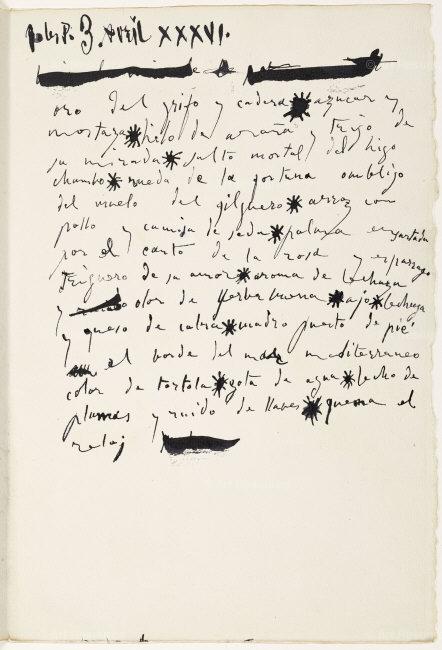 3. Avril XXXVI.
oro del grifo y cadera * azucar y
mostaza * hilo de araña y trigo de
su mirada * salto mortal del higo
chumbo * rueda de la fortuna ombligo
del vuelo del gilguero * arroz con
pollo y camisa de seda * paloma ensartada
por el canto de la rosa y esparrago
triguero de su amor * aroma de lechuza
y olor de yerba buena * ajo * lechuga
y queso de cabra * cuadro puerto de pié
el borde del mar mediterraneo
color de tortola * gota de agua * lecho de
plumas y ruido de llaves * quema el
reloj